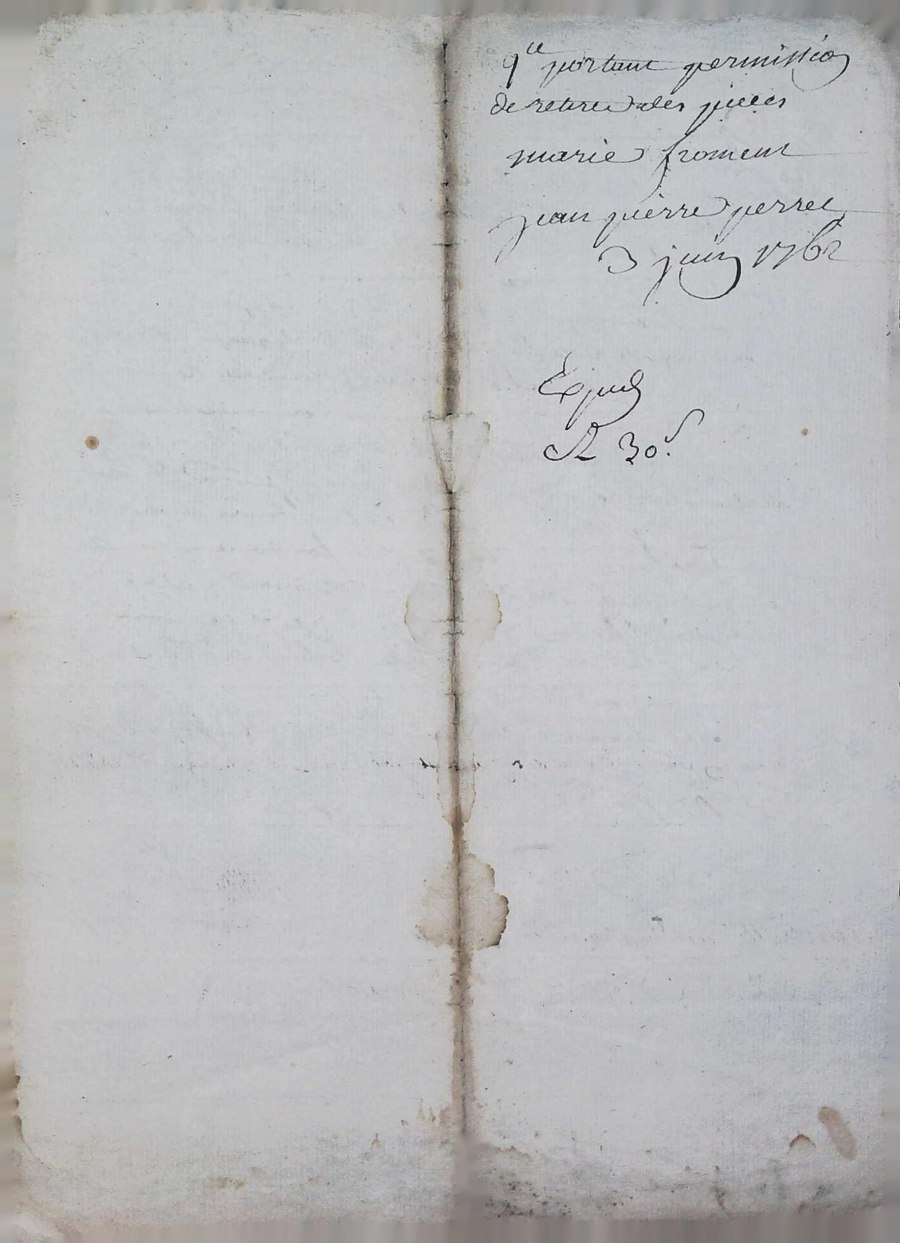 qte portant permission
de retirer des pieces
marie froment
jean pierre perret
3 juin 1762
Expedi
R 30 s